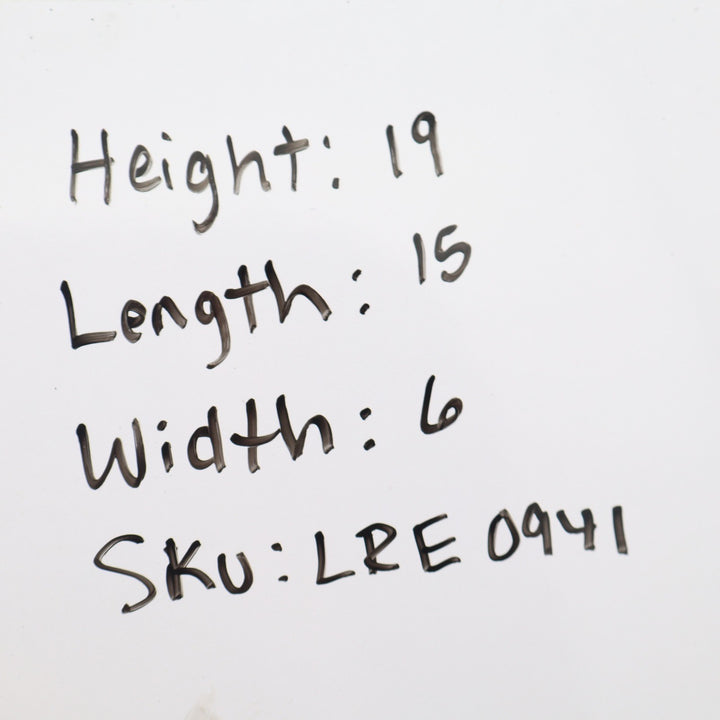 Height: 19
Length: 15
Width: 6
SKU: LRE 0941